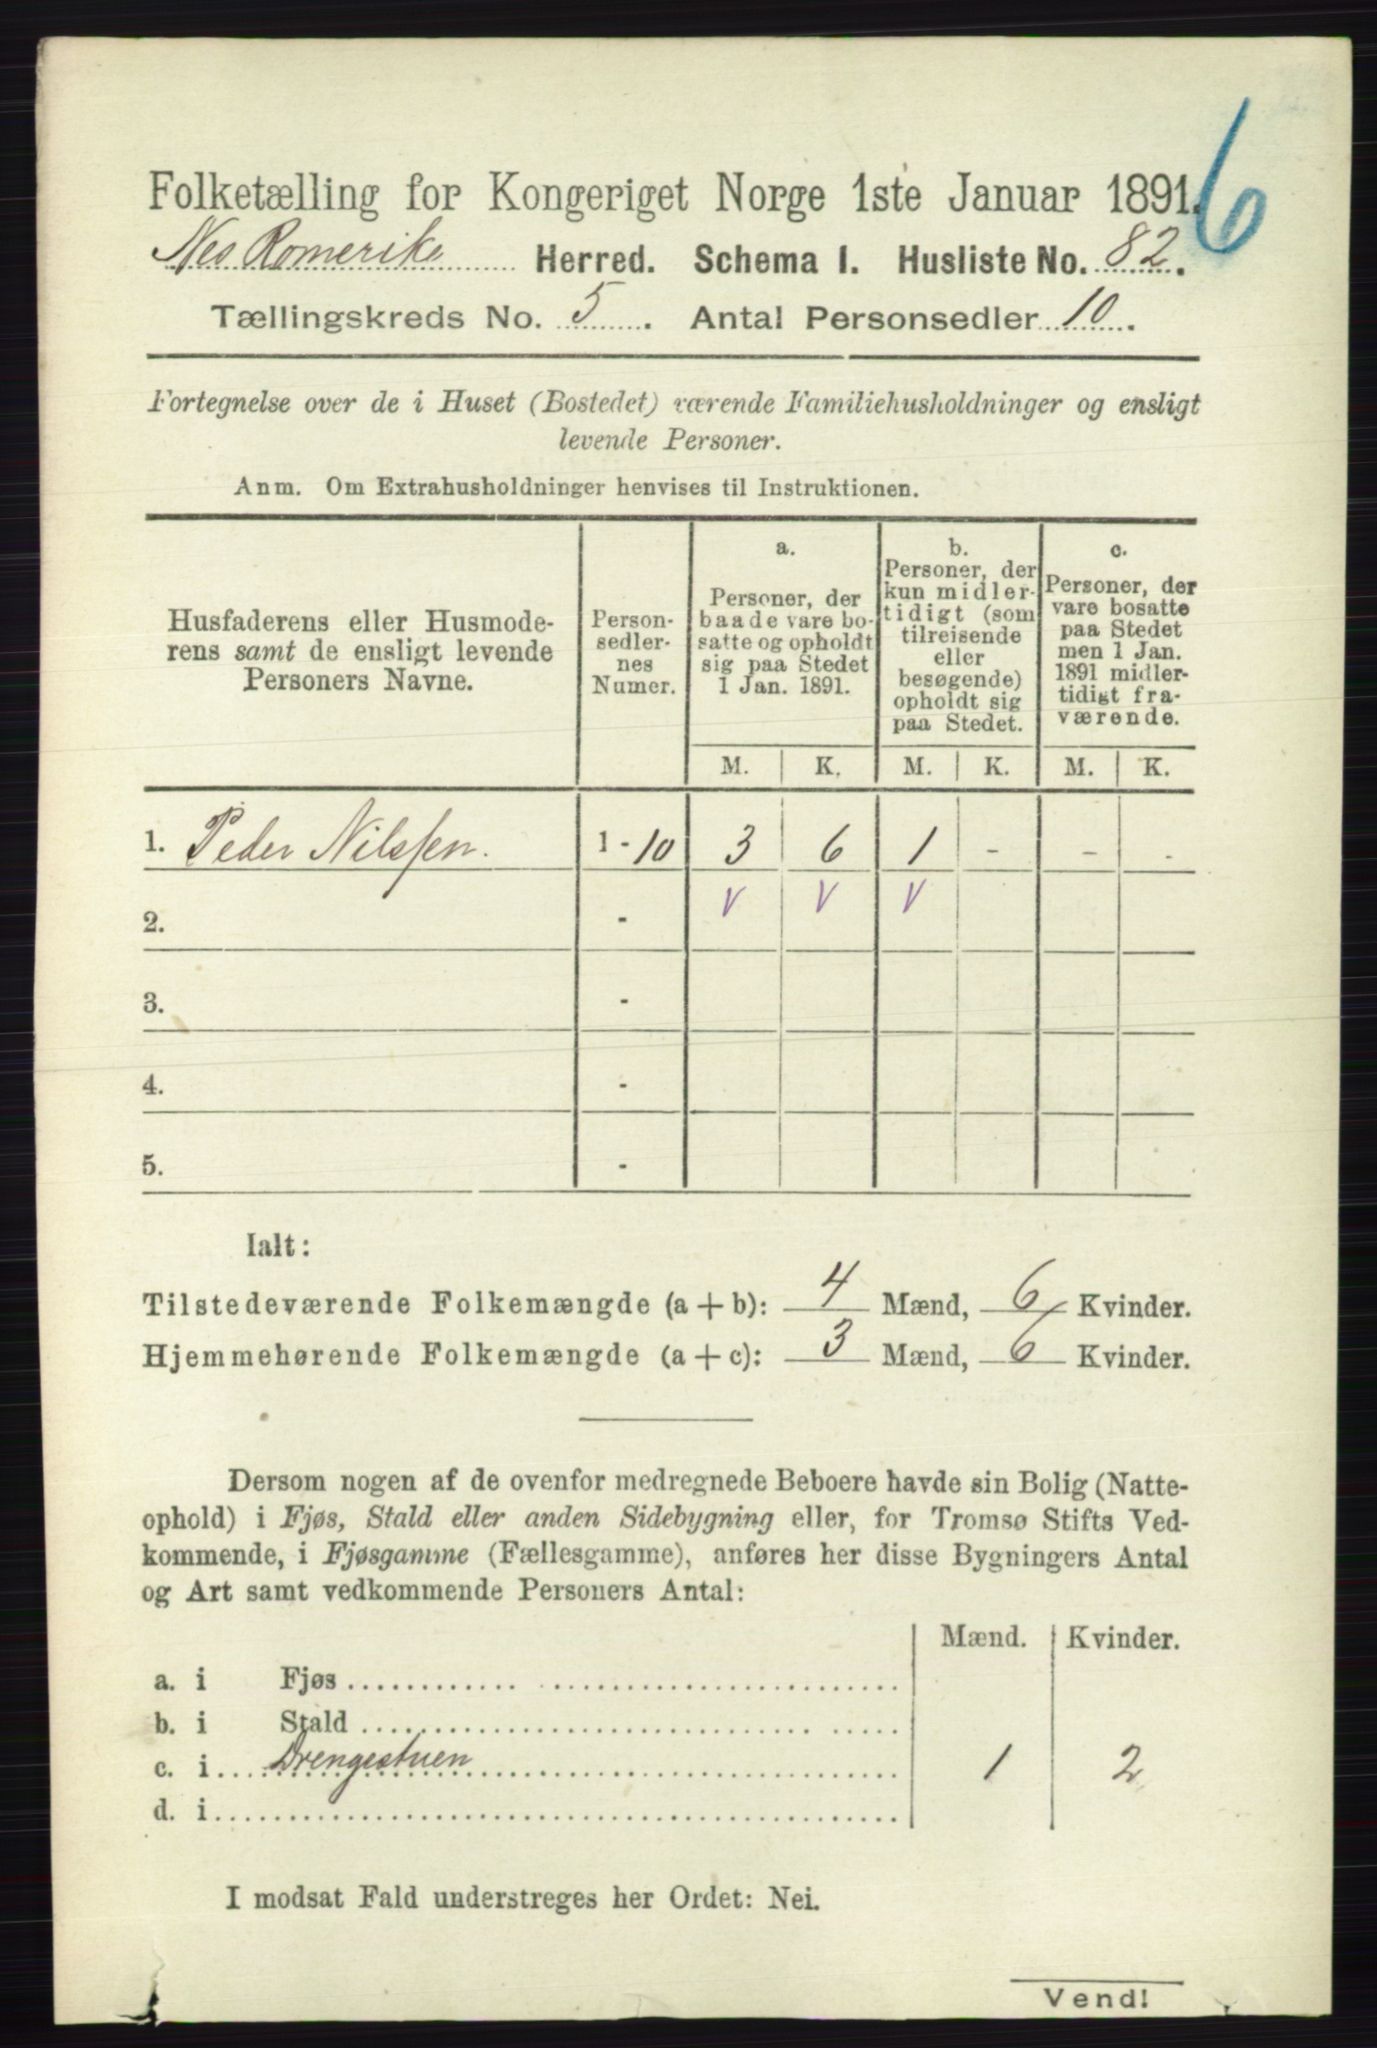 6
Folketælling for Kongeriget Norge 1ste Januar 1891.
Nes Romerike Herred. Schema I. Husliste No. 82.
Tællingskreds No. 5. Antal Personsedler 10.
Fortegnelse over de i Huset (Bostedet) værende Familiehusholdninger og ensligt
levende Personer.
Anm. Om Extrahusholdninger henvises til Instruktionen.
Husfaderens eller Husmode-
rens samt de ensligt levende
Personers Navne.
Person-
sedler-
nes
Numer.
a.
Personer, der
baade vare bo-
satte og opholdt
sig paa Stedet
1 Jan. 1891.
b.
Personer, der
kun midler-
tidigt (som
tilreisende
eller
besøgende)
opholdt sig
paa Stedet.
c.
Personer, der
vare bosatte
paa Stedet
men 1 Jan.
1891 midler-
tidigt fra-
værende.
M. K. M. K. M. K.
1. Peder Nilssen. 1 - 10 3 6 1 - - -
2. - V V V
3. -
4. -
5. -
Ialt:
Tilstedeværende Folkemængde (a + b): 4 Mænd, 6 Kvinder.
Hjemmehørende Folkemængde (a + c): 3 Mænd, 6 Kvinder.
Dersom nogen af de ovenfor medregnede Beboere havde sin Bolig (Natte-
ophold) i Fjøs, Stald eller anden Sidebygning eller, for Tromsø Stifts Ved-
kommende, i Fjøsgamme (Fællesgamme), anføres her disse Bygningers Antal
og Art samt vedkommende Personers Antal:
Mænd. Kvinder.
a. i Fjøs
b. i Stald
c. i Drengestuen 1 2
d. i
I modsat Fald understreges her Ordet: Nei.
Vend!